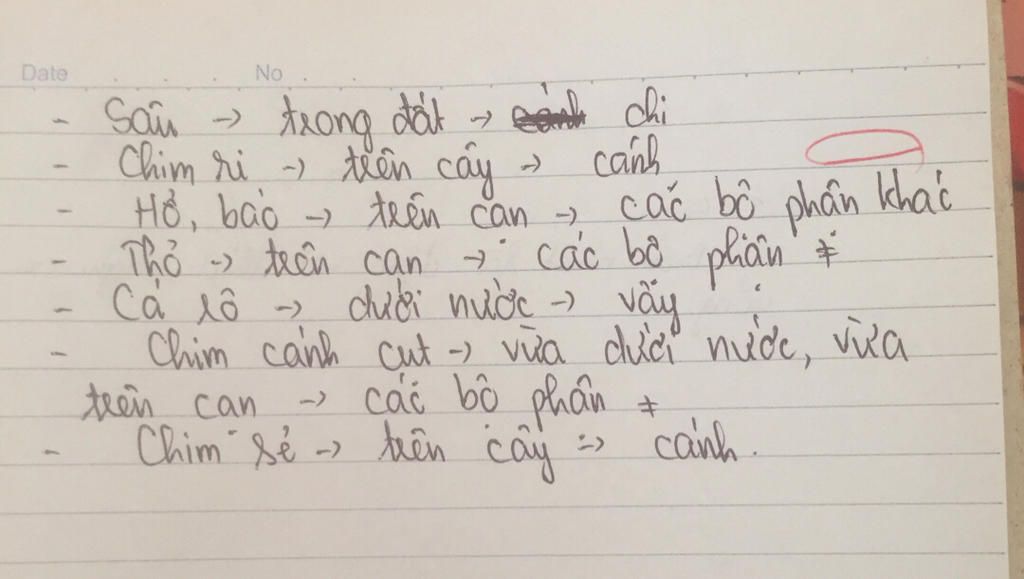 Date No
- Sâu → trong đất → chi
- Chim ri → trên cây → cánh
- Hổ, báo → trên cạn → các bộ phận khác
- Thỏ → trên cạn → các bộ phận ≠
- Cá rô → dưới nước → vây
- Chim cánh cụt → vừa dưới nước, vừa
trên cạn → các bộ phận ≠
- Chim sẻ → trên cây → cánh.